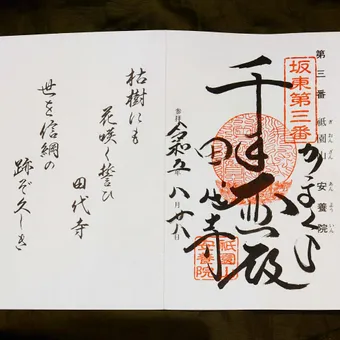 第三番 祇園山 安養院
ぎおんざん あんよういん
坂東第三番
かまくら
千手大悲殿
田代寺
祇園山
安養院
参拝 令和五年八月廿八日
枯樹にも
花咲く誓ひ
田代寺
世を信綱の
跡ぞ久しき